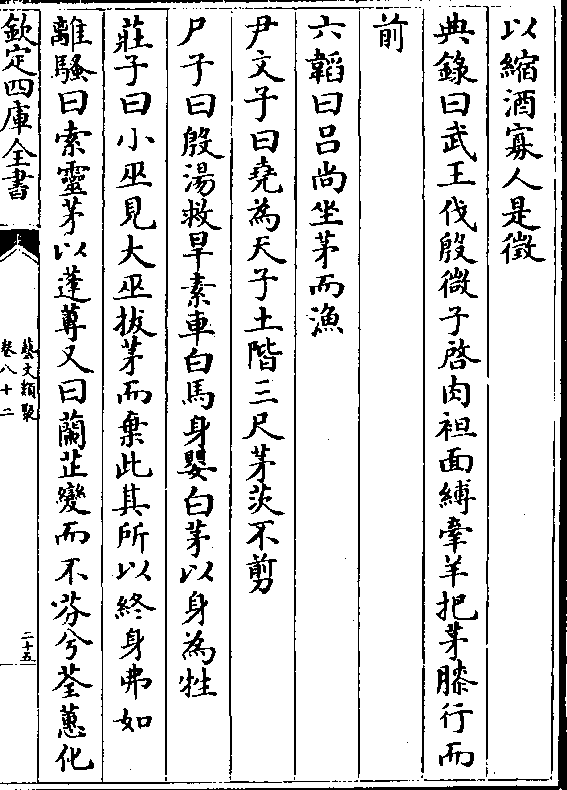 以縮酒寡人是徴
典錄曰武王伐殷微子啓肉袒面縛牽羊把茅膝行而
前
六韜曰吕尚坐茅而漁
尹文子曰堯為天子土階三尺茅茨不剪
尸子曰殷湯救旱素車白馬身嬰白茅以身為牲
莊子曰小巫見大巫拔茅而棄此其所以終身弗如
離騷曰索靈茅以蓬蓴又曰蘭芷變而不芬兮荃蕙化
欽定四庫全書
藝文類聚
卷八十二
二十五